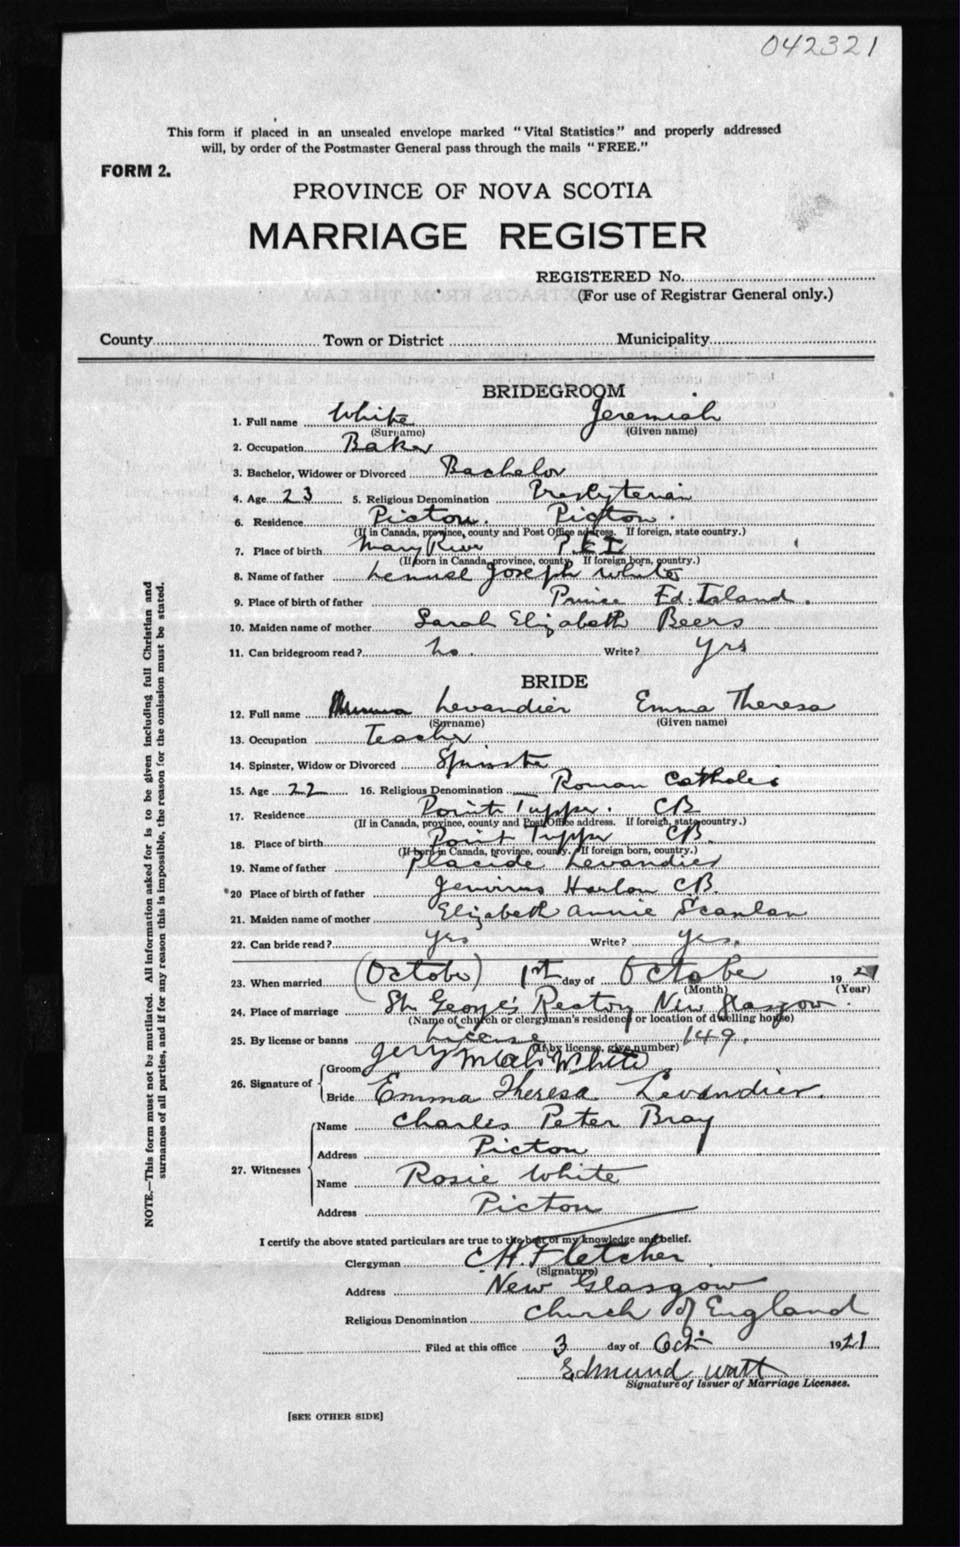 042321
This form if placed in an unsealed envelope marked "Vital Statistics" and properly addressed
will, by order of the Postmaster General pass through the mails "FREE."
FORM 2.
PROVINCE OF NOVA SCOTIA
MARRIAGE REGISTER
REGISTERED No.
(For use of Registrar General only.)
County Town or District Municipality
BRIDEGROOM
1. Full name White Jeremiah
(Surname) (Given name)
2. Occupation Baker
3. Bachelor, Widower or Divorced Bachelor
4. Age 23 5. Religious Denomination Presbyterian
6. Residence Picton. Picton.
(If in Canada, province, county and Post Office address. If foreign, state country.)
7. Place of birth Mary River P.E.I
(If born in Canada, province, county. If foreign born, country.)
8. Name of father Lemuel Joseph White
9. Place of birth of father Prince Ed. Island.
10. Maiden name of mother Sarah Elizabeth Beers
11. Can bridegroom read? no. Write? yrs
BRIDE
12. Full name Levandier Emma Theresa
(Surname) (Given name)
13. Occupation Teacher
14. Spinster, Widow or Divorced Spinster
15. Age 22 16. Religious Denomination Roman Catholic
17. Residence Point Tupper. CB
(If in Canada, province, county and Post Office address. If foreign, state country.)
18. Place of birth Point Tupper CB.
(If born in Canada, province, county. If foreign born, country.)
19. Name of father Placide Levandier
*20 Place of birth of father CB.
21. Maiden name of mother Elizabeth Annie Scanlan
22. Can bride read? yrs Write? yes.
23. When married (October) 1st day of October 1921
(Month) (Year)
24. Place of marriage St. George's Rectory New Glasgow.
(Name of church or clergyman's residence or location of dwelling house)
25. By license or banns License 149.
(If by license, give number)
26. Signature of
Groom Jerymiah White
Bride Emma Theresa Levandier.
27. Witnesses
Name Charles Peter Bray
Address Picton
Name Rosie White
Address Picton
I certify the above stated particulars are true to the best of my knowledge and belief.
Clergyman C. H. Fletcher
(Signature)
Address New Glasgow
Religious Denomination Church of England
Filed at this office 3 day of Oct. 1921
Edmund Watt
Signature of Issuer of Marriage Licenses.
[SEE OTHER SIDE]
NOTE.—This form must not be mutilated. All information asked for is to be given including full Christian and
surnames of all parties, and if for any reason this is impossible, the reason for the omission must be stated.